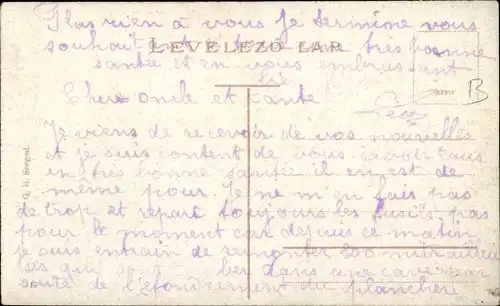 Plus rien à vous je termine vous
souhait tous une très bonne
santée et en vous embrassant
LEVELEZŐ LAP
Chere oncle et tante
Je viens de recevoir de vos nouvelles
et je suis content de vous savoir tous
en très bonne santée il en est de
même pour Je ne m'en fais pas
de trop et repart toujours les fusils pas
pour le moment car depuis ce matin
je suis entrain de remonter 200 mitrailleu
ses qui sont ber dans une cave par
suite de l'efondrement du plancher
G. H. Szeged.
B